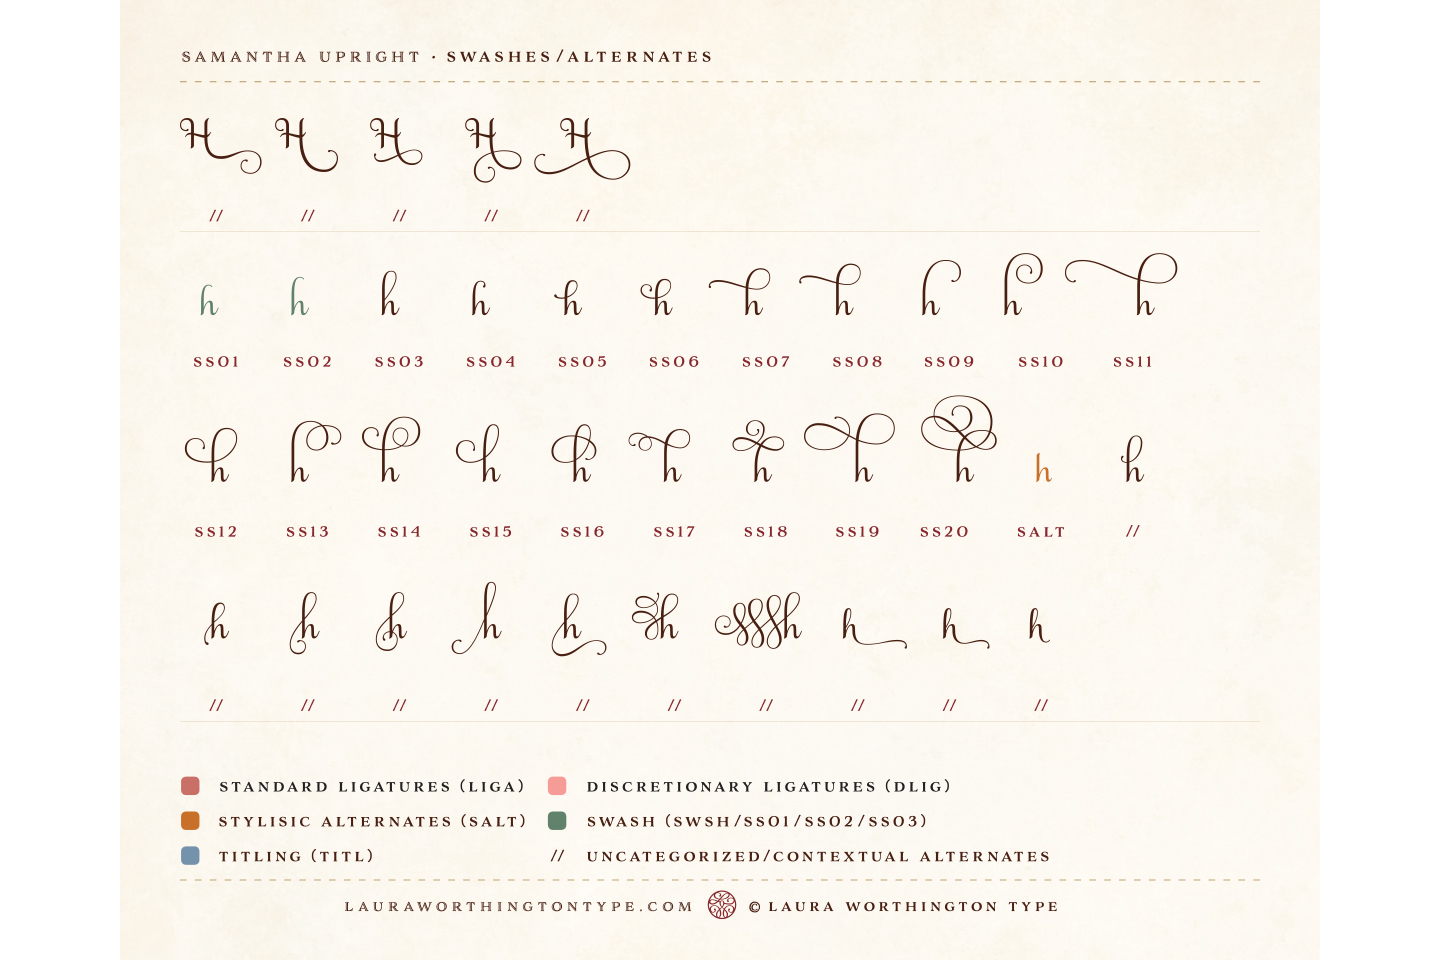 SAMANTHA UPRIGHT · SWASHES/ALTERNATES
H H H H H
// // // // //
h h h h h h h h h h h
SS01 SS02 SS03 SS04 SS05 SS06 SS07 SS08 SS09 SS10 SS11
h h h h h h h h h h h
SS12 SS13 SS14 SS15 SS16 SS17 SS18 SS19 SS20 SALT //
h h h h h h h h h h
// // // // // // // // // //
STANDARD LIGATURES (LIGA) DISCRETIONARY LIGATURES (DLIG)
STYLISIC ALTERNATES (SALT) SWASH (SWSH/SS01/SS02/SS03)
TITLING (TITL) // UNCATEGORIZED/CONTEXTUAL ALTERNATES
LAURAWORTHINGTONTYPE.COM © LAURA WORTHINGTON TYPE